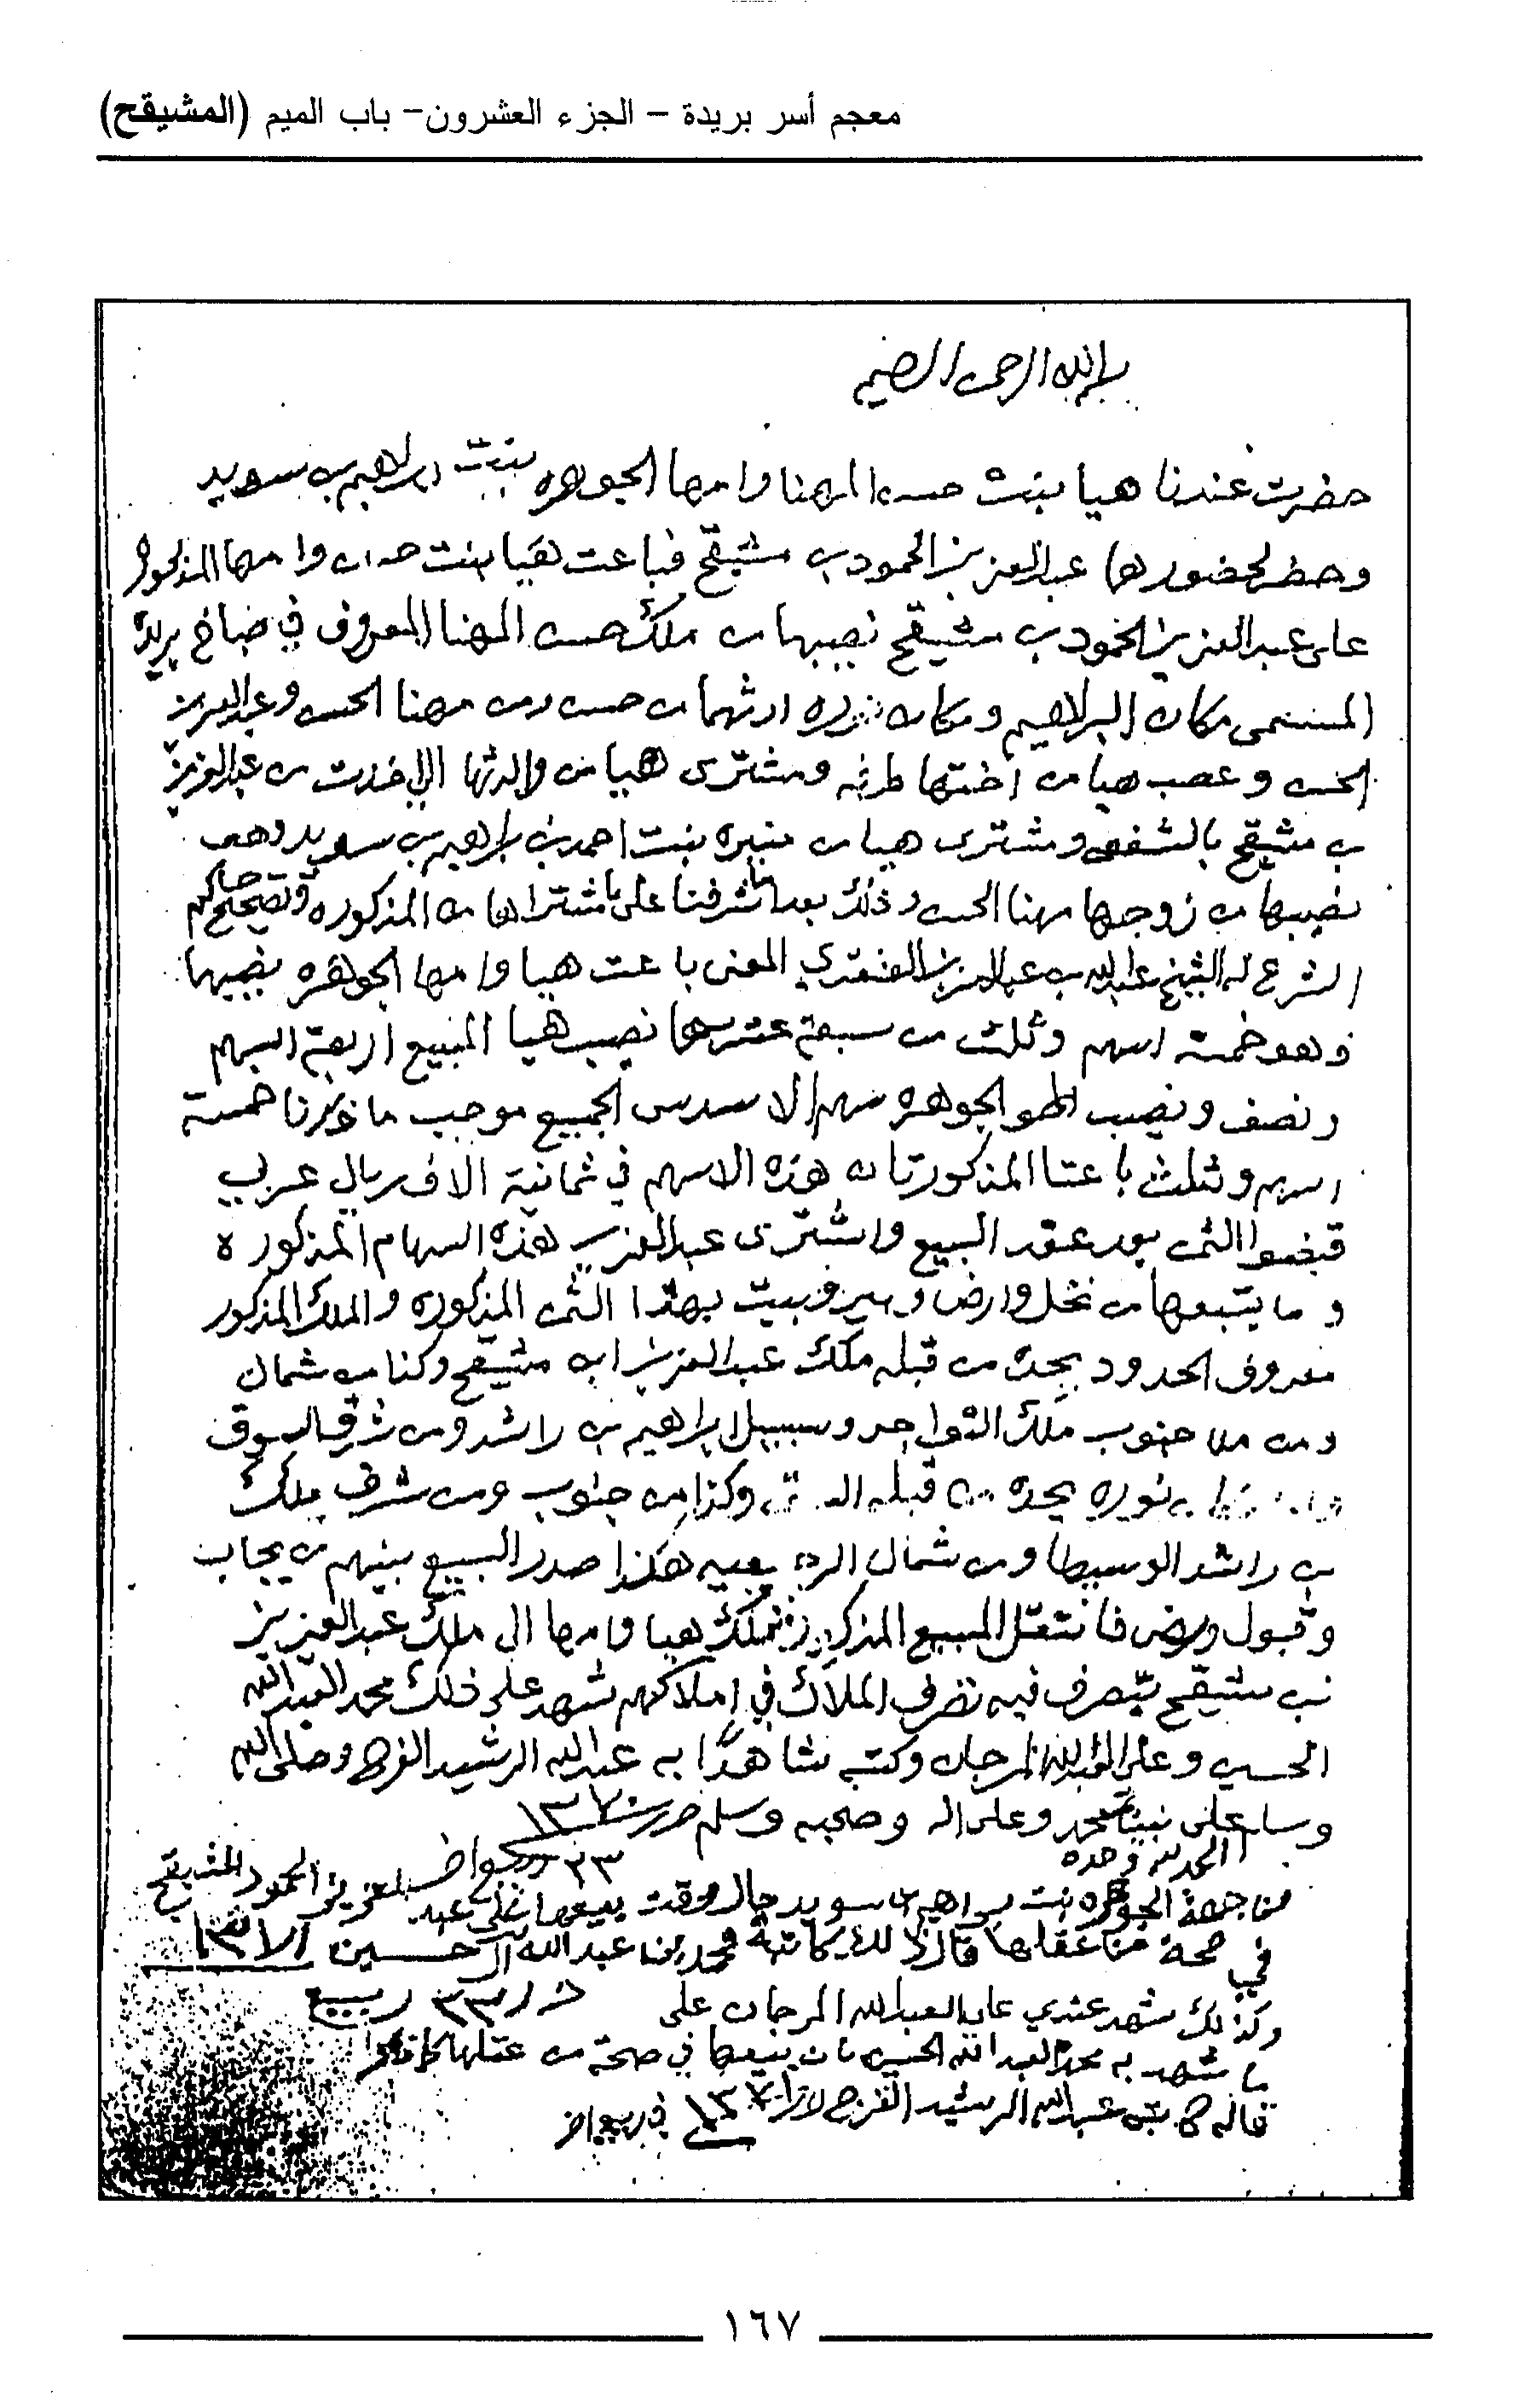 معجم أسر بريدة – الجزء العشرون– باب الميم (المشيقح)
بسم الله الرحمن الرحيم
حضرت عندنا هيا بنت حسن المهنا وامها الجوهره بنت ابراهيم بن سويد
وحضر لحضورها عبدالعزيز الحمود بن مشيقح فباعت هيا بنت حسن وامها المذكوره
على عبدالعزيز الحمود بن مشيقح نصيبها من ملك حسن المهنا المعروف في صباخ بريده
المسمى مكان البراهيم ومكان نوره ارثهما من حسن ومن مهنا الحسن وعبدالعزيز
الحسن وعصب هيا من اختها طرفه ومشترى هيا من والدتها الاخذت من عبدالعزيز
بن مشيقح بالشفعه ومشترى هيا من منيره بنت احمد بن ابراهيم بن سويد وهي
نصيبها من زوجها مهنا الحسن وذلك بعد ما شرفنا على مشتراها من المذكوره وتصحيح حاكم
الشرع له الشيخ عبدالله بن عبدالعزيز العنقري المعنى باعت هيا وامها الجوهره نصيبها
وهو خمسة اسهم وثلث من سبعة عشر سهما نصيب هيا المبيع اربعة اسهم
ونصف ونصيب امها الجوهره سهم الا سدس الجميع موجب ما ذكرنا خمسة
اسهم وثلث باعتا المذكورتان هذه الاسهم في ثمانية الاف ريال عربي
قبضوا الثمن بعد عقد البيع واشترى عبدالعزيز هذه السهام المذكوره
وما يتبعها من نخل وارض وبير وبيت بهذا الثمن المذكوره والملك المذكور
معروف الحدود يحده من قبله ملك عبدالعزيز ابن مشيقح وكذا من شمال
ومن جنوب ملك التواجر وسبيل ابراهيم بن راشد ومن شرق السوق
نوره يحده من قبله وكذا من جنوب ومن شرق ملك
بن راشد الوسيطا ومن شمال هكذا صدر البيع بينهم من يجاب
وقبول ورضى فانتقل المبيع المذكور من ملك هيا وامها الى ملك عبدالعزيز
بن مشيقح يتصرف فيه تصرف الملاك في املاكهم شهد على ذلك محمد العبدالله
الحسين وعلي العبدالله المرجان وكتبه شاهدا به عبدالله الرشيد الفرج وصلى الله
وسلم على نبينا محمد وعلى اله وصحبه وسلم حرر ١٣٧٠
٢٣ ربيع اخر
الحمد لله وحده
من جهة الجوهره بنت براهيم ابن سويد حال وقت بيعها على عبدالعزيز الحمود المشيقح
في صحة من عقلها قال ذلك كاتبه محمد بن عبدالله آل حسين
وكذلك شهد عندي علي العبدالله المرجان على
ما شهد به محمد العبدالله الحسين بان بيعها في صحة من عقلها
قاله كاتبه عبدالله الرشيد الفرج ١٣٧٠ في ربيع اخر
١٦٧